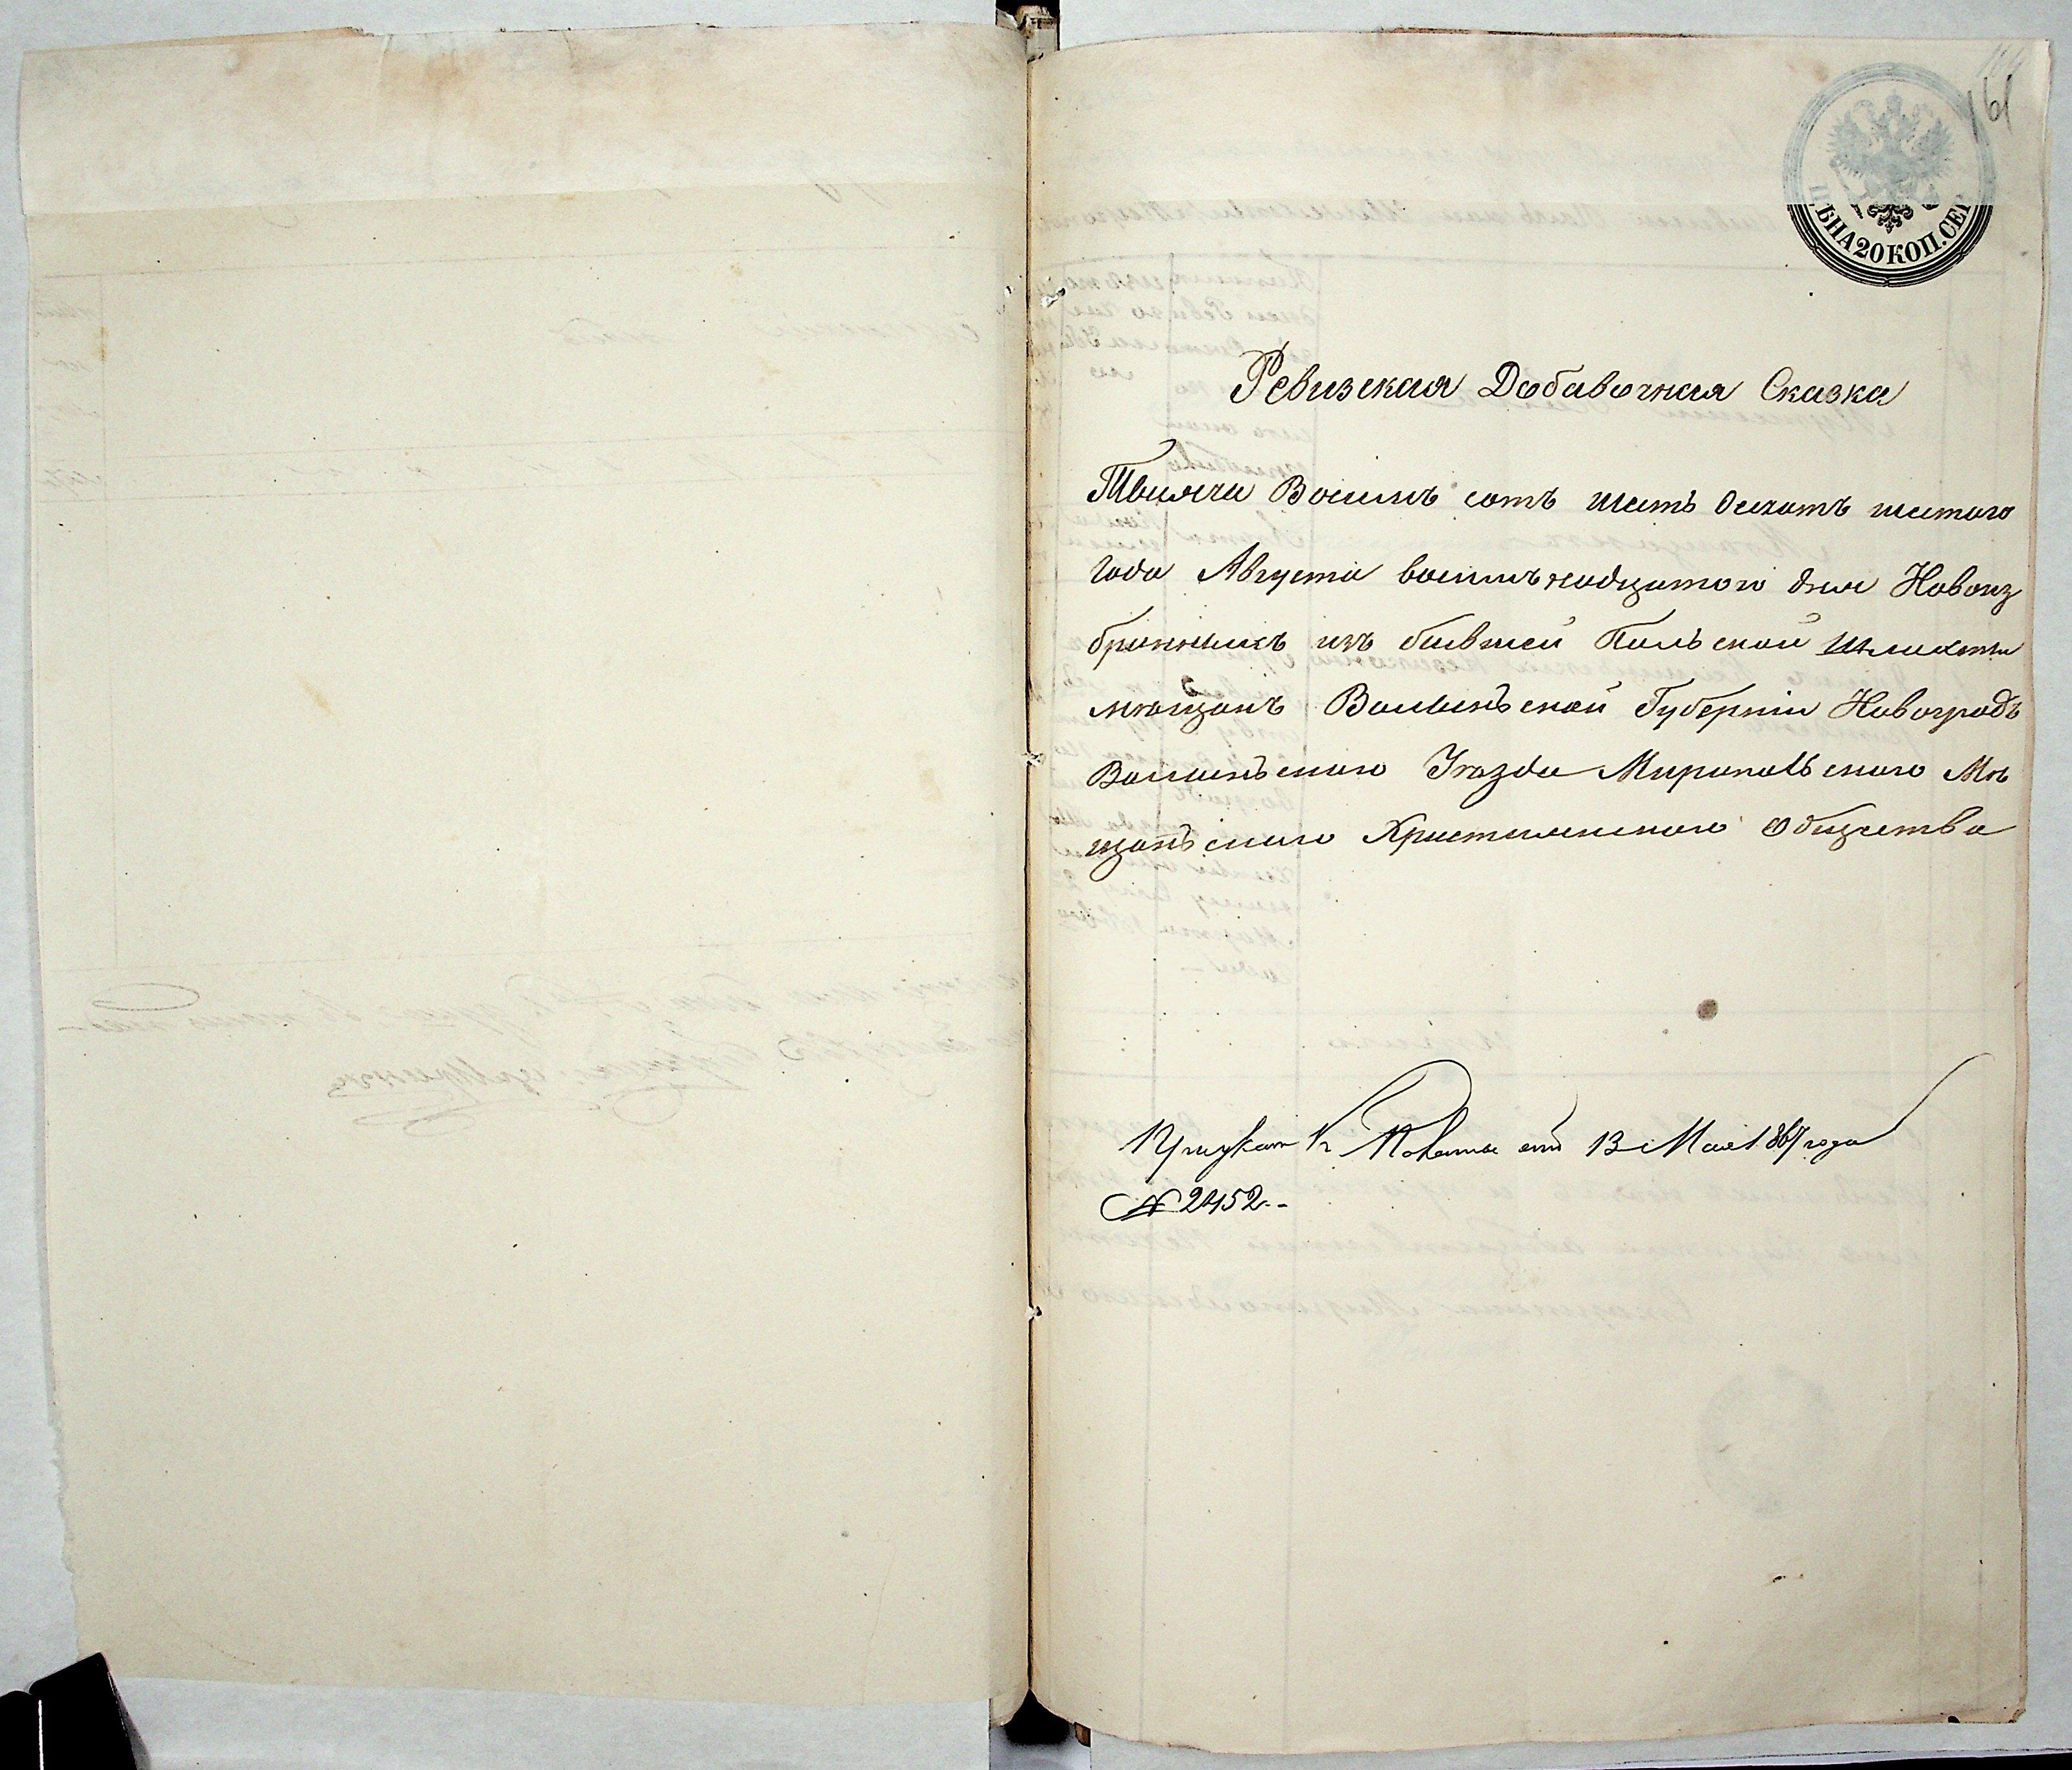 161
ЦѢНА 20 КОП. СЕР
Ревизская Добавочная Сказка
Тысяча Восимъ сотъ шесть десятъ шестаго
года Августа восимънадцатого дня Новоиз
бранныхъ изъ бывшей Польской шляхты
мѣщанъ Волынъской Губерніи Новоградъ
Волынъскаго Уѣзда Миропольскаго Мѣ
щанъскаго Христіянскаго Общества
Къ отъ 13 Мая 1867 года
№ 2452.-